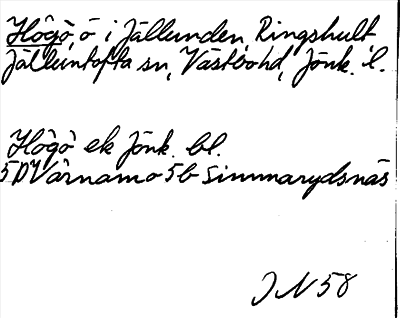 Högö, ö i Jällunden, Ringshult
Jälluntofta sn, Västbo hd, Jönk. l.
Högö ek Jönk. bl.
5D Värnamo 5b Simmarydsnäs
JN 58